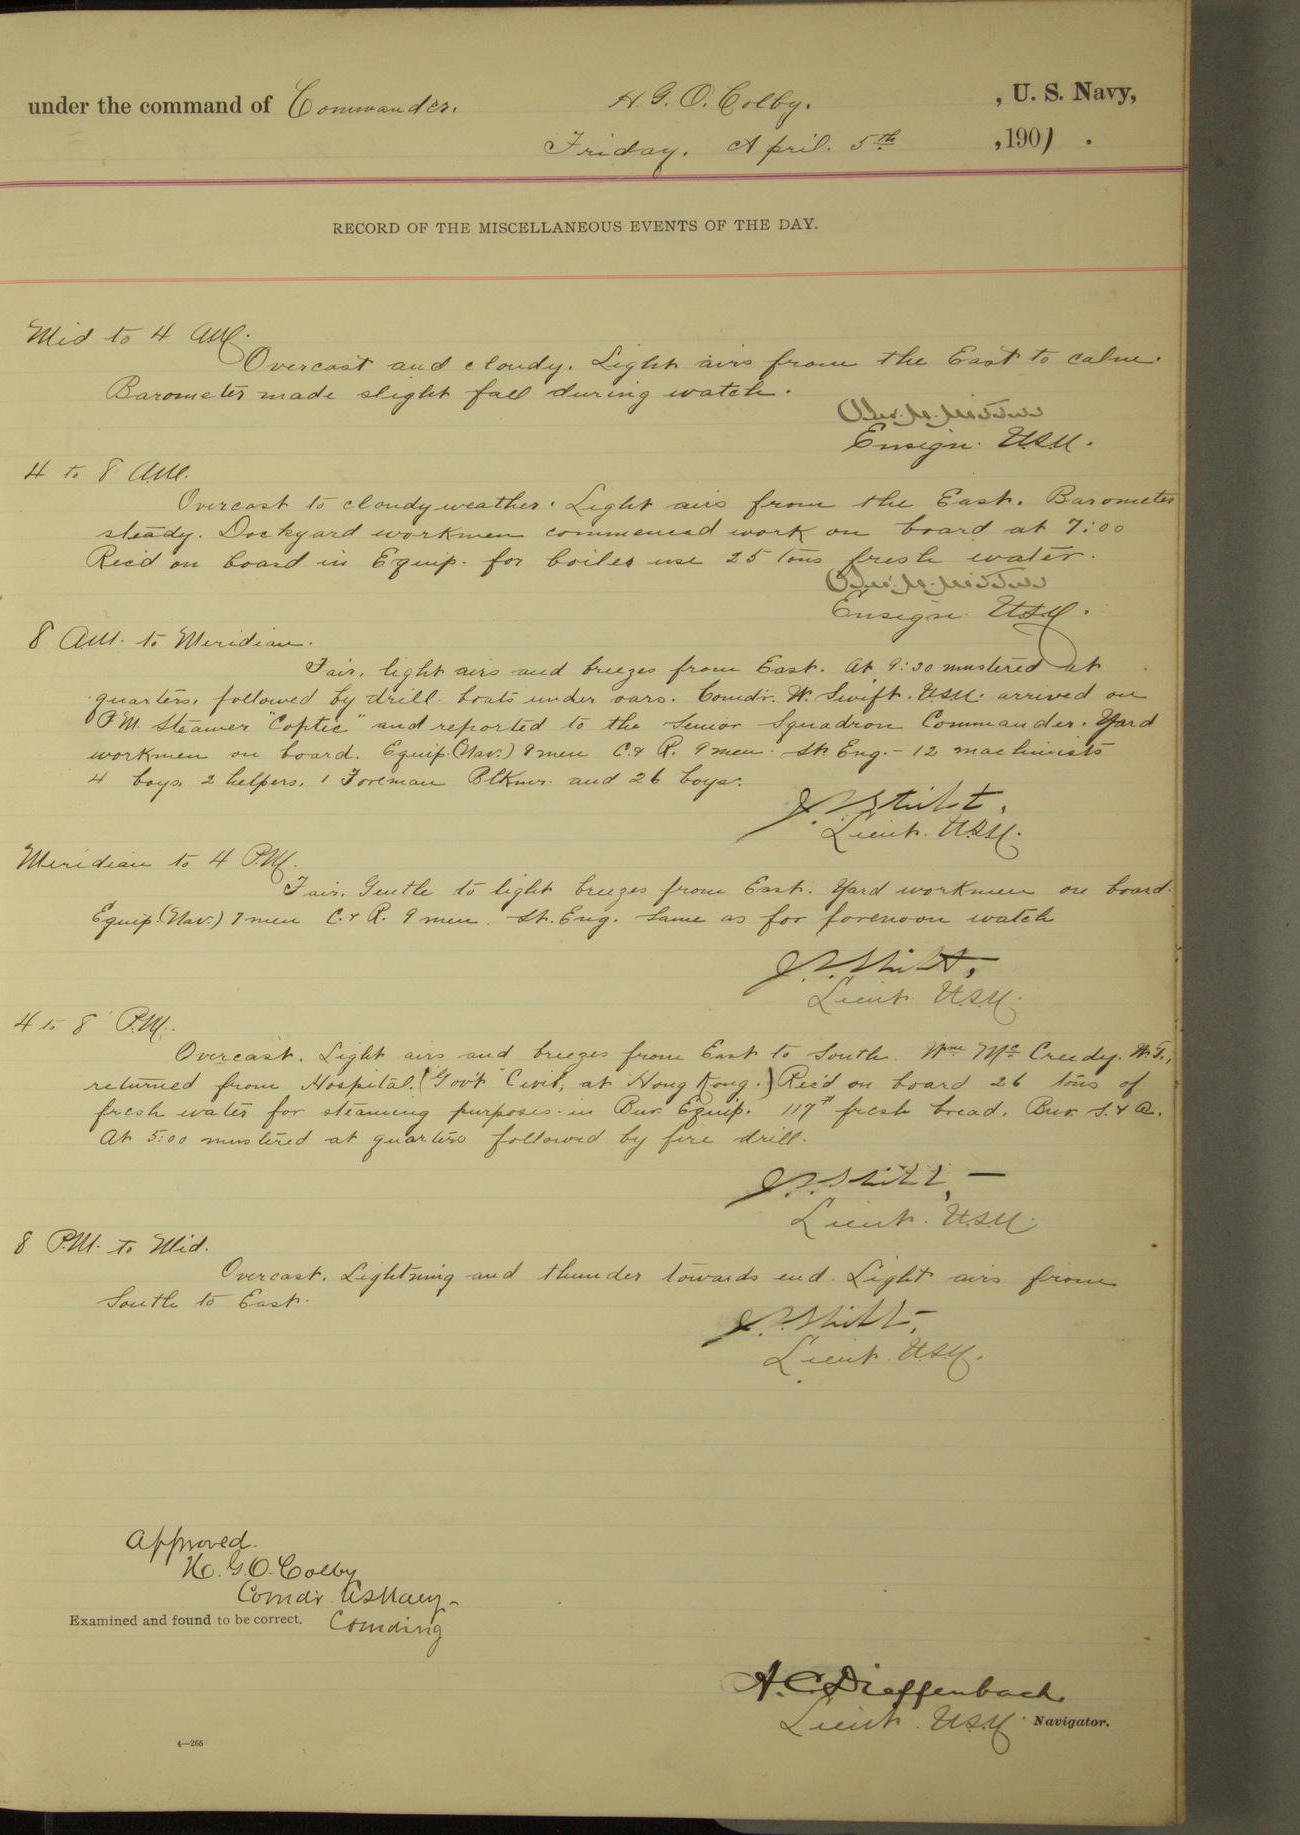 under the command of Commander. H. G. O. Colby. , U. S. Navy,
Friday. April. 5th ,1901.
RECORD OF THE MISCELLANEOUS EVENTS OF THE DAY.
Mid to 4 AM.
Overcast and cloudy. Light airs from the East to calm.
Barometer made slight fall during watch.
Ensign. U.S.N.
4 to 8 A.M.
Overcast to cloudy weather. Light airs from the East. Barometer
steady. Dockyard workmen commenced work on board at 7:00
Rec'd on board in Equip. for boiler use 25 tons fresh water.
Ensign. U.S.N.
8 A.M. to Meridian.
Fair, light airs and breezes from East. At 9:30 mustered at
quarters, followed by drill. boats under oars. Comdr. W. Swift. U.S.N. arrived on
P.M. Steamer "Coptic" and reported to the Senior Squadron Commander. Yard
workmen on board. Equip. (Nav.) 8 men C. & R. 9 men. St. Eng. - 12 machinists
4 boys, 2 helpers, 1 Foreman Blkmr. and 26 boys.
Lieut. U.S.N.
Meridian to 4 P.M.
Fair. Gentle to light breezes from East. Yard workmen on board.
Equip. (Nav.) 7 men C. & R. 9 men. St. Eng. Same as for forenoon watch
Lieut. U.S.N.
4 to 8 P.M.
Overcast. Light airs and breezes from East to South. Wm Mc Creedy. W.T.,
returned from Hospital. (Gov't Civil, at Hong Kong.) Rec'd on board 26 tons of
fresh water for steaming purposes in Bur. Equip. 117# fresh bread. Bur. S. & A.
At 5:00 mustered at quarters followed by fire drill.
Lieut. U.S.N.
8 P.M. to Mid.
Overcast. Lightning and thunder towards end. Light airs from
South to East.
Lieut. U.S.N.
Approved.
H. G. O. Colby
Comdr. US Navy-
Examined and found to be correct. Comding
A. C. Dieffenbach.
Lieut. U.S.N. Navigator.
4—265